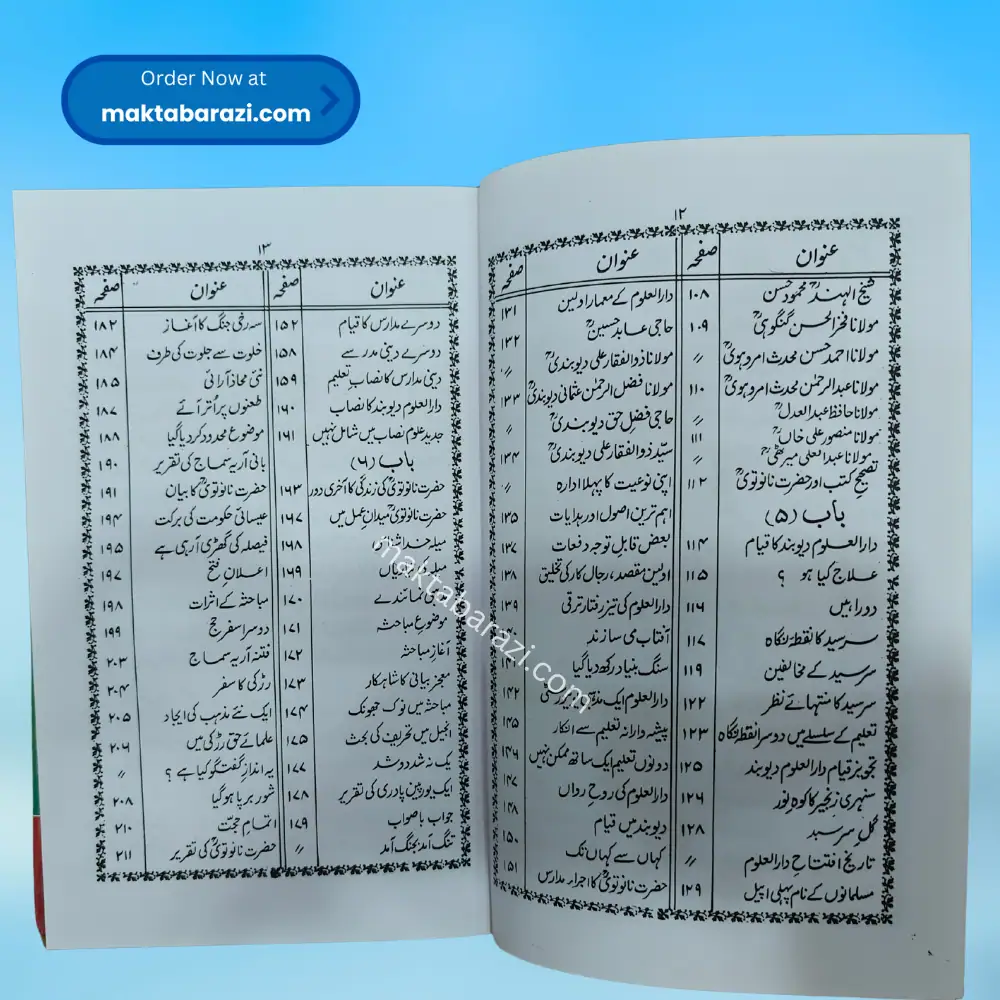 Order Now at
maktabarazi.com
۱۲
عنوان صفحہ
شیخ الہندؒ محمود حسن ۱۰۸
مولانا فخر الحسن گنگوہیؒ ۱۰۹
مولانا احمد حسن محدث امروہویؒ 〃
مولانا عبدالرحمٰن محدث امروہویؒ ۱۱۰
مولانا حافظ عبدالعدلؒ 〃
مولانا منصور علی خاںؒ ۱۱۱
مولانا عبدالعلی میرٹھیؒ 〃
تصحیح کتب اور حضرت نانوتویؒ ۱۱۲
باب (۵)
دارالعلوم دیوبند کا قیام ۱۱۴
علاج کیا ہو ؟ ۱۱۵
دو راہیں ۱۱۶
سرسید کا نقطہ نگاہ ۱۱۷
سرسید کے مخالفین ۱۱۹
سرسید کا منتہائے نظر ۱۲۲
تعلیم کے سلسلے میں دوسرا نقطہ نگاہ ۱۲۳
تجویز قیام دارالعلوم دیوبند ۱۲۵
سنہری زنجیر کا کوہ نور ۱۲۶
گل سرسبد ۱۲۸
تاریخ افتتاح دارالعلوم 〃
مسلمانوں کے نام پہلی اپیل ۱۲۹
عنوان صفحہ
دارالعلوم کے معمار اولین ۱۳۱
حاجی عابد حسینؒ ۱۳۲
مولانا ذوالفقار علی دیوبندیؒ 〃
مولانا فضل الرحمٰن عثمانی دیوبندیؒ ۱۳۳
حاجی فضل حق دیوبندیؒ 〃
سیّد ذوالفقار علی دیوبندیؒ ۱۳۴
اپنی نوعیت کا پہلا ادارہ 〃
اہم ترین اصول اور ہدایات ۱۳۵
بعض قابل توجہ دفعات ۱۳۷
اولین مقصد، رجال کار کی تخلیق ۱۳۸
دارالعلوم کی تیز رفتار ترقی ۱۳۹
آفتاب می سازند
سنگ بنیاد رکھ دیا گیا
دارالعلوم ایک ۱۴۲
پیشہ دارانہ تعلیم سے انکار ۱۴۵
دونوں تعلیم ایک ساتھ ممکن نہیں ۱۴۶
دارالعلوم کی روح رواں ۱۴۷
دیوبند میں قیام ۱۴۸
کہاں سے کہاں تک ۱۵۰
حضرت نانوتویؒ کا اجراء مدارس ۱۵۱
۱۳
عنوان صفحہ
دوسرے مدارس کا قیام ۱۵۲
دوسرے دینی مدرسے ۱۵۸
دینی مدارس کا نصاب تعلیم ۱۵۹
دارالعلوم دیوبند کا نصاب ۱۶۰
جدید علوم نصاب میں شامل نہیں ۱۶۱
باب (۶)
حضرت نانوتویؒ کی زندگی کا آخری دور ۱۶۳
حضرت نانوتویؒ میدان عمل میں ۱۶۷
میلہ خدا ۱۶۸
میلہ ۱۶۹
نمائندے ۱۷۰
موضوع مباحثہ ۱۷۱
آغاز مباحثہ ۱۷۲
معجز بیانی کا شاہکار ۱۷۳
مباحثہ میں نوک جھونک ۱۷۴
انجیل میں تحریف کی بحث ۱۷۵
یک نہ شد دو شد ۱۷۷
ایک یورپین پادری کی تقریر ۱۷۸
جواب باصواب ۱۷۹
تنگ آمد بجنگ آمد 〃
عنوان صفحہ
سہ رخی جنگ کا آغاز ۱۸۲
خلوت سے جلوت کی طرف ۱۸۴
نئی محاذ آرائی ۱۸۵
طعنوں پر اُتر آئے ۱۸۷
موضوع محدود کر دیا گیا ۱۸۸
بانی آریہ سماج کی تقریر ۱۹۰
حضرت نانوتویؒ کا بیان ۱۹۱
عیسائی حکومت کی برکت ۱۹۴
فیصلہ کی گھڑی آرہی ہے ۱۹۵
اعلان فتح ۱۹۷
مباحثہ کے اثرات ۱۹۸
دوسرا سفر حج ۱۹۹
فتنہ آریہ سماج ۲۰۳
رڑکی کا سفر ۲۰۴
ایک نئے مذہب کی ایجاد ۲۰۵
علمائے حق رڑکی میں ۲۰۶
یہ انداز گفتگو کیا ہے ؟ 〃
شور برپا ہوگیا ۲۰۸
اتمام حجت ۲۱۰
حضرت نانوتویؒ کی تقریر ۲۱۱
maktabarazi.com